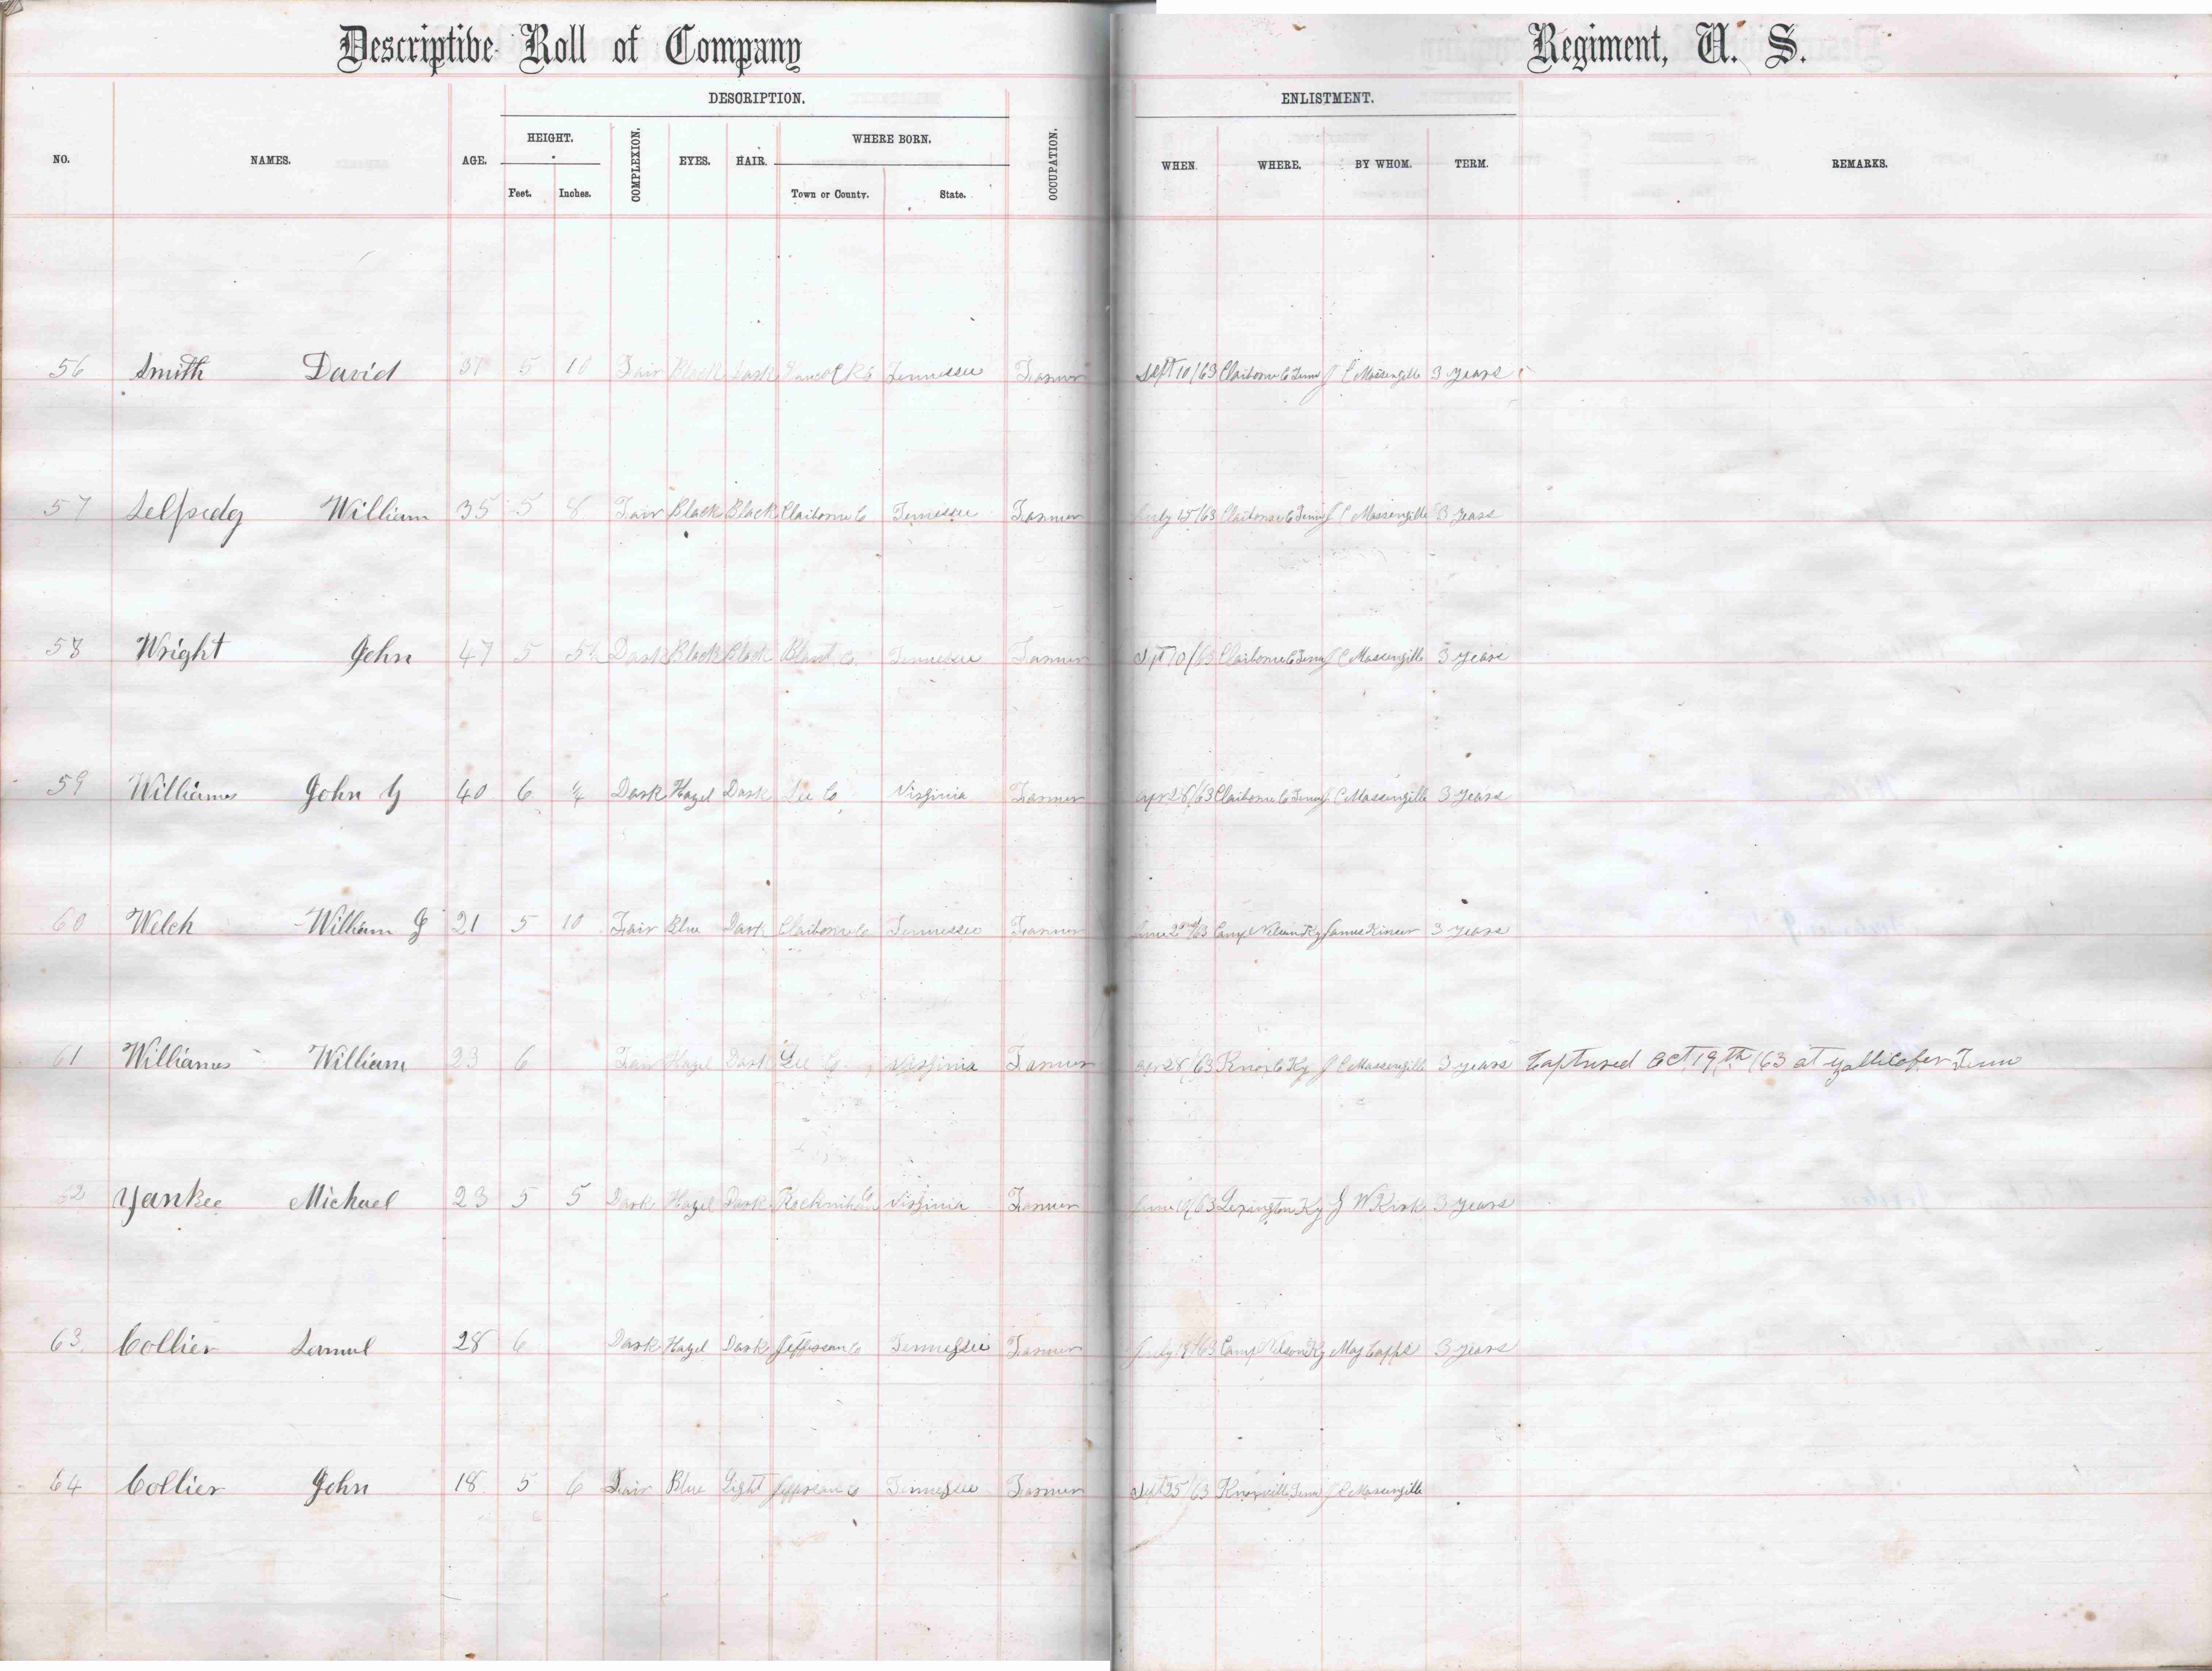 Descriptive Roll of Company Regiment, U. S.
DESCRIPTION. ENLISTMENT.
HEIGHT. WHERE BORN.
NO. NAMES. AGE. COMPLEXION. EYES. HAIR. OCCUPATION. WHEN. WHERE. BY WHOM. TERM. REMARKS.
Feet. Inches. Town or County. State.
56 Smith David 5 10 Fair Black Dark Tennessee Farmer Sept 10/63 Claiborne C Tenn J C Massengille 3 years
57 William 35 5 8 Fair Black Black Claiborne C Tennessee Farmer July 25/63 Claiborne C Tenn J C Massengille 3 years
58 Wright John 47 5 Dark Black Black Blount Co. Tennessee Farmer Sept 10/63 Claiborne C Tenn J C Massengille 3 years
59 Williams John G 40 6 Dark Hazel Dark Lee Co Virginia Farmer apr 28/63 Claiborne C Tenn J C Massengille 3 years
60 Welch William J 21 5 10 Fair Blue Dark Claiborne Co Tennessee Farmer Camp Nelson Ky James 3 years
61 Williams William 23 6 Fair Hazel Dark Lee Co Virginia Farmer apr 28/63 Knox C Ky J C Massengille 3 years Captured Oct 19th/63 at Zollicofer Tenn
62 Yankee Michael 23 5 5 Dark Hazel Dark Virginia Farmer June 19/63 Lexington Ky J W Kirk 3 years
63 Collier Samul 28 6 Dark Hazel Dark Jefferson Co Tennessee Farmer July 19/63 Camp Nelson Ky Maj Capps 3 years
64 Collier John 18 5 6 Fair Blue Light Jefferson Co Tennessee Farmer Sept 25/63 Knoxville Tenn J C Massengille